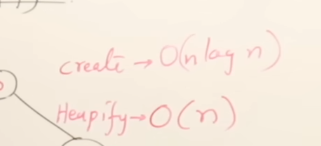 create → O(n log n)
Heapify → O(n)